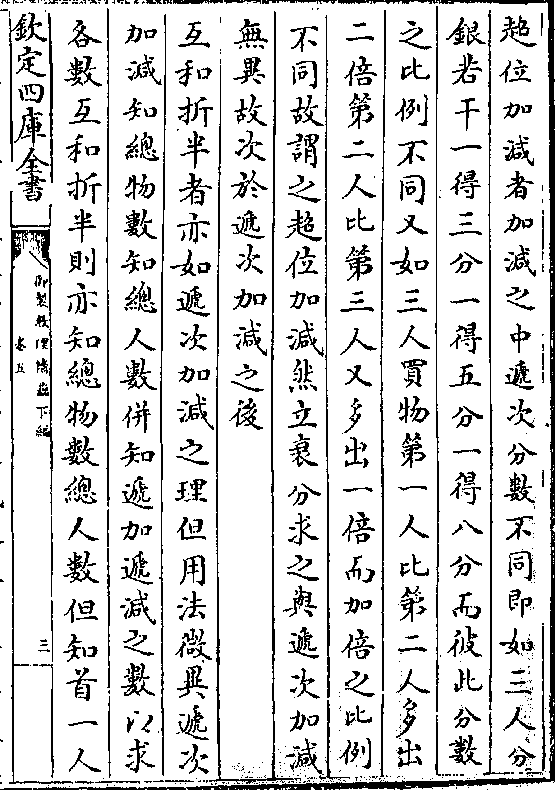 超位加減者加減之中遞次分數不同即如三人分
銀若干一得三分一得五分一得八分而彼此分數
之比例不同又如三人買物第一人比第二人多出
二倍第二人比第三人又多出一倍而加倍之比例
不同故謂之超位加減然立衰分求之與遞次加減
無異故次於遞次加減之後
互和折半者亦如遞次加減之理但用法微異遞次
加減知總物數知總人數併知遞加遞減之數以求
各數互和折半則亦知總物數總人數但知首一人
欽定四庫全書
御製數理精蘊下編
卷五
三